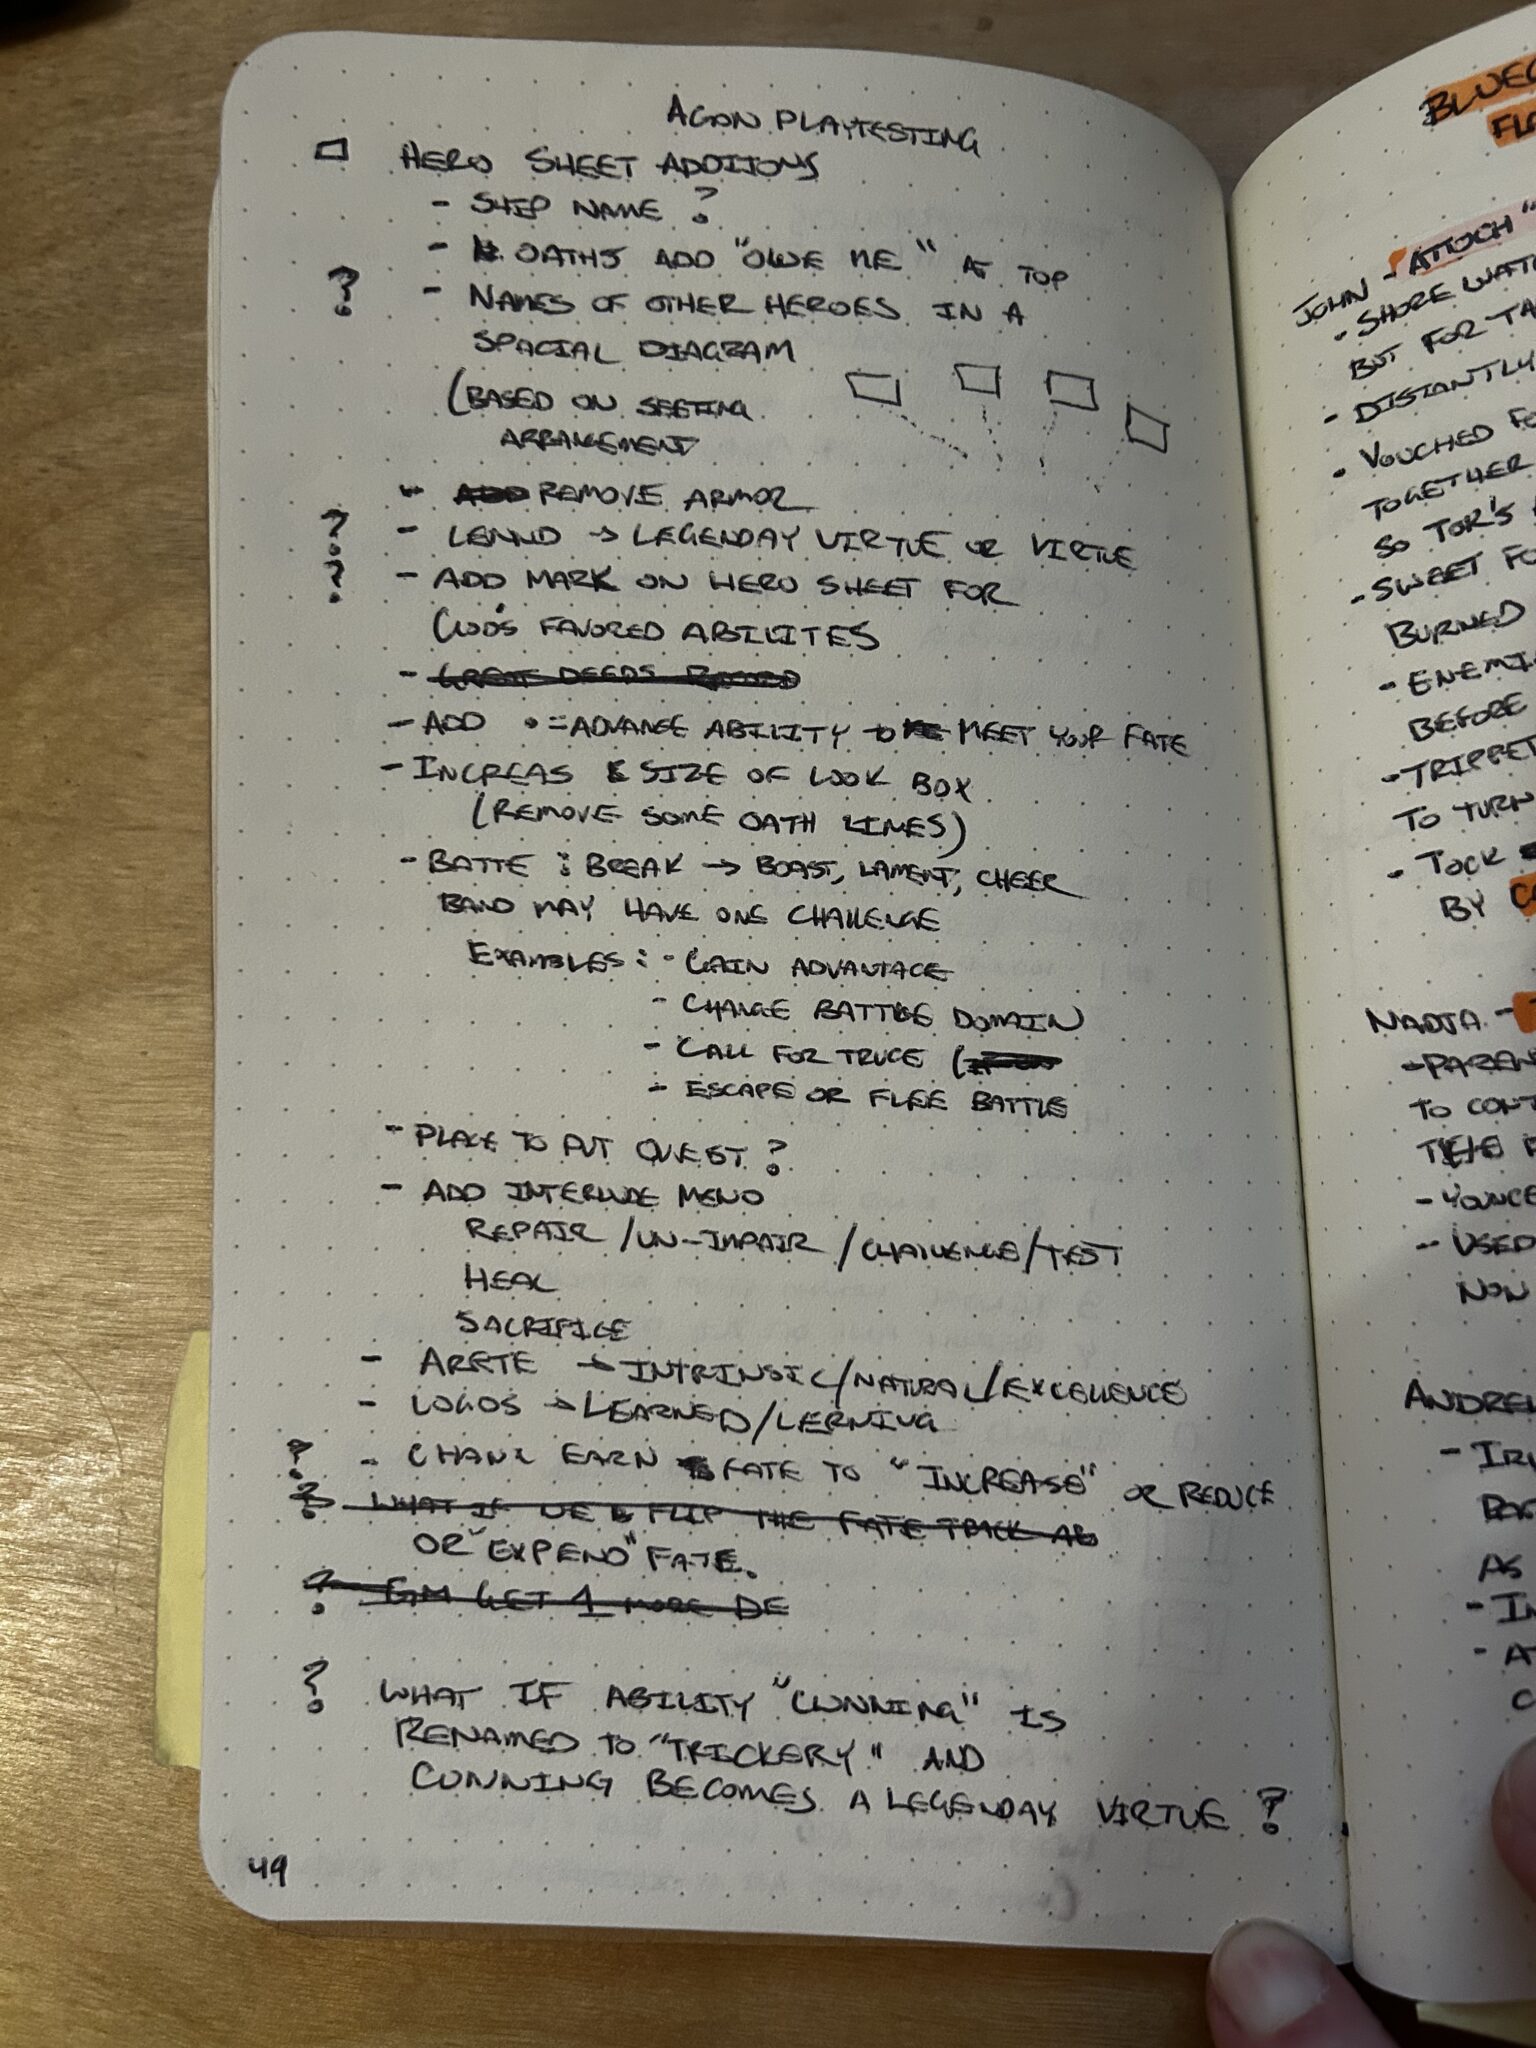 AGON PLAYTESTING
HERO SHEET ADDITIONS
- SHIP NAME ?
- OATHS ADD "OWE ME" AT TOP
? - NAMES OF OTHER HEROES IN A
SPACIAL DIAGRAM
(BASED ON SEETING
ARRANGEMENT
- ADD REMOVE ARMOR
? - → LEGENDAY VIRTUE OR VIRTUE
? - ADD MARK ON HERO SHEET FOR
GOD'S FAVORED ABILITES
- GREAT DEEDS RECORD
- ADD • = ADVANCE ABILITY TO MEET YOUR FATE
- INCREAS SIZE OF LOOK BOX
(REMOVE SOME OATH LINES)
- BATTE : BREAK → BOAST, LAMENT, CHEER
BAND MAY HAVE ONE CHALLENGE
EXAMBLES : - GAIN ADVANTAGE
- CHANGE BATTLE DOMAIN
- CALL FOR TRUCE (
- ESCAPE OR FLEE BATTLE
- PLACE TO PUT QUEST ?
- ADD INTERLUDE MENO
REPAIR / UN-IMPAIR / CHALLENGE / TEST
HEAL
SACRIFICE
- ARETE → INTRINSIC/NATURAL/EXCELLENCE
- LOGOS → LEARNED/LERNING
? - EARN FATE TO "INCREASE" OR REDUCE
? WHAT IF WE FLIP THE FATE TRACK AS
OR "EXPEND" FATE.
? - GM GET 1 MORE DE
? WHAT IF ABILITY "CUNNING" IS
RENAMED TO "TRICKERY" AND
CUNNING BECOMES A LEGENDAY VIRTUE ?
49
JOHN - ATTOCH "
BUT FOR
- DISTANTLY
• VOUCHED
TOGETHER
SO TOR'S
- SWEET
BURNED
BEFORE
TO TURN
• TOCK
BY
NADJA -
TO
- USED
NON
AS